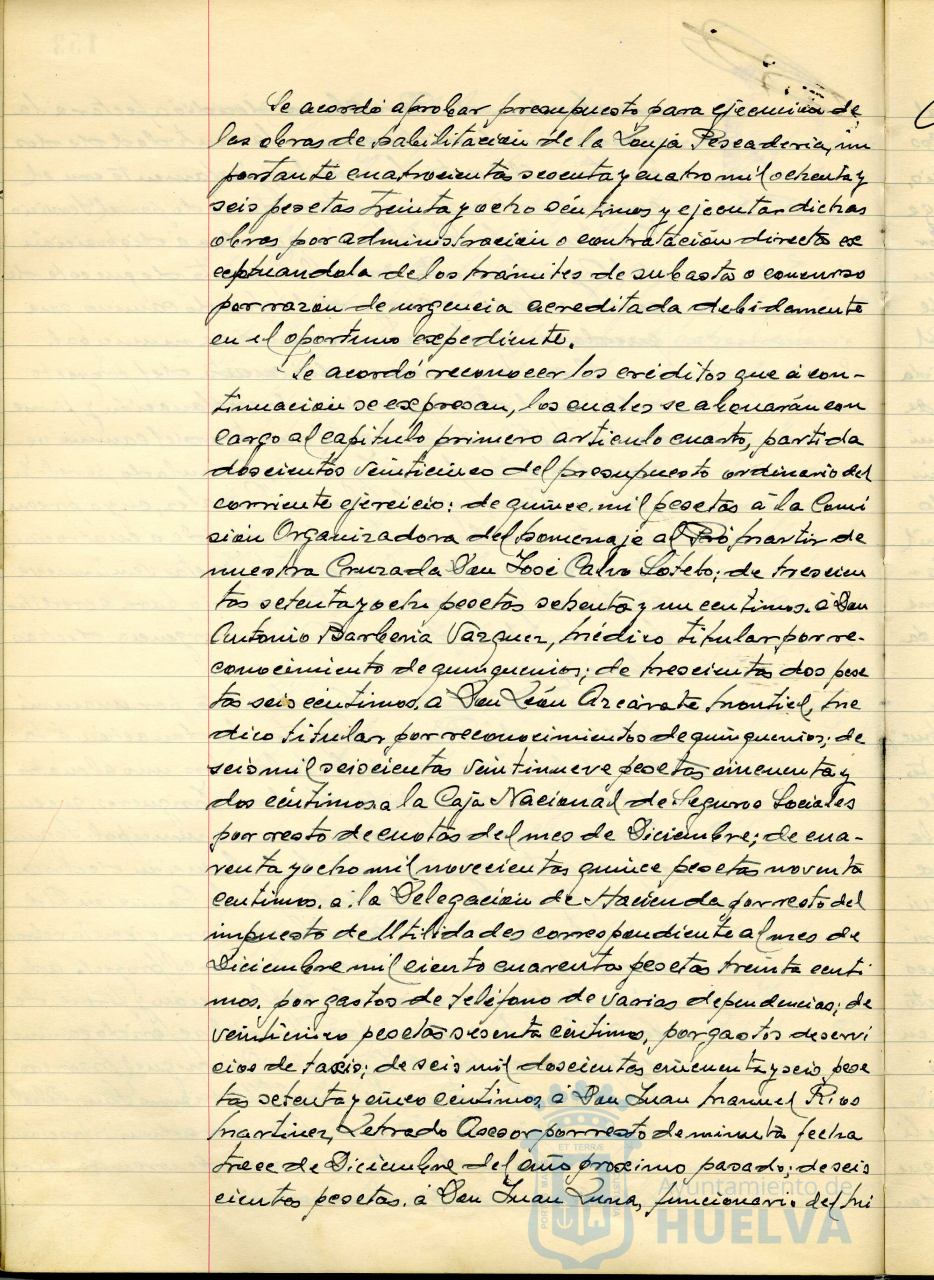 Se acordó aprobar presupuesto para ejecución de
las obras de habilitación de la Lonja Pescadería, im
portante cuatrocientas sesenta y cuatro mil ochenta y
seis pesetas treinta y ocho céntimos y ejecutar dichas
obras por administración o contratación directa ex
ceptuandola de los trámites de subasta o concurso
por razón de urgencia acreditada debidamente
en el oportuno expediente.
Se acordó reconocer los créditos que a con-
tinuación se expresan, los cuales se abonarán con
cargo al capítulo primero artículo cuarto, partida
doscientos veinticinco del presupuesto ordinario del
corriente ejercicio: de quince mil pesetas a la Comi
sión Organizadora del homenaje al Pro Martir de
nuestra Cruzada Don José Calvo Sotelo; de trescien
tas setenta y ocho pesetas setenta y un centimos. a Don
Antonio Barberia Vazquez, Médico titular por re-
conocimiento de quinquenios; de trescientas dos pese
tas seis centimos, a Don León Azcárate Montiel, Mé
dico titular por reconocimientos de quinquenios; de
seis mil seiscientas veintinueve pesetas cincuenta y
dos céntimos a la Caja Nacional de Seguros Sociales
por resto de cuotas del mes de Diciembre; de cua-
renta y ocho mil novecientas quince pesetas noventa
centimos. a la Delegación de Hacienda por resto del
impuesto de Utilidades correspondiente al mes de
Diciembre mil ciento cuarenta pesetas treinta centi
mos. por gastos de teléfono de varias dependencias; de
veinticinco pesetas sesenta céntimos, por gastos de servi
cios de taxis; de seis mil doscientas cincuenta y seis pese
tas setenta y cinco centimos a Don Juan Manuel Rivo
Martinez, Letrado Asesor por resto de minuta fecha
trece de Diciembre del año proximo pasado; de seis
cientas pesetas. a Don Juan Luna, funcionario del Mi
Ayuntamiento de
HUELVA